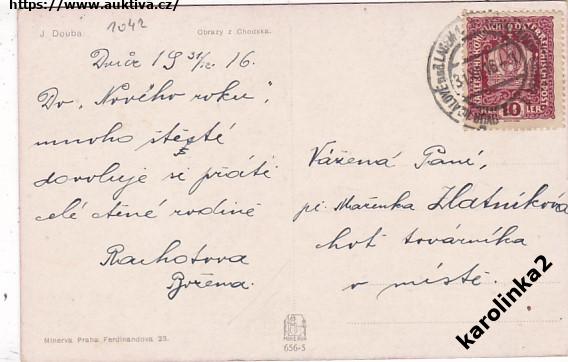 https://www.auktiva.cz/
1042
J. Douba.
Obrazy z Chodska.
19 31/12 16.
Do „Nového roku"
mnoho štěstí
dovoluje si přáti
celé ctěné rodině
Rachotova
Božena.
Vážená Paní,
pí. Mařenka Zlatníková
choť továrníka
v místě.
10
LER
Minerva Praha Ferdinandova 23.
MINERVA
656-5
karolinka2